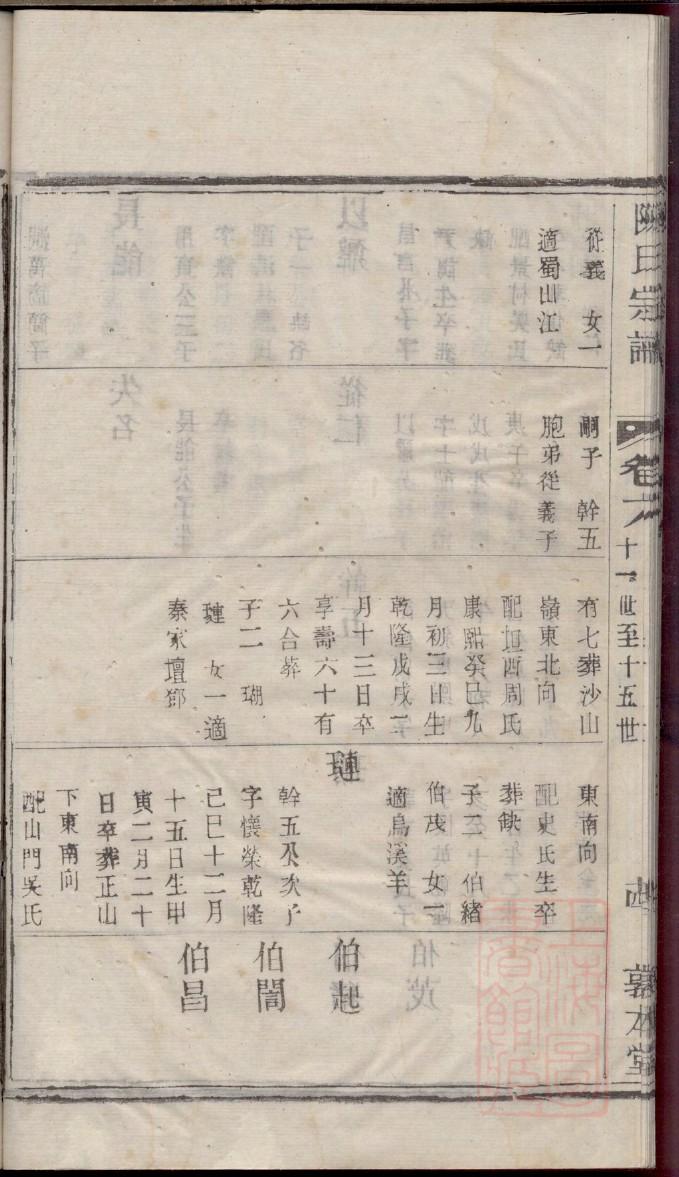 陳氏宗譜
卷六
十一世至十五世
從義 女一
適蜀山江
嗣子 幹五
胞弟從義子
有七葬沙山
嶺東北向
配垣西周氏
康熙癸巳九
月初三日生
乾隆戊戌二
月十三日卒
享壽六十有
六合葬
子二 瑚
璉 女一適
秦家壇鄧
東南向
配史氏生卒
葬缺
子二 伯緒
伯茂 女一
適烏溪羊
璉
幹五公次子
字懷榮乾隆
己巳十二月
十五日生甲
寅二月二十
日卒葬正山
下東南向
配山門吳氏
伯起
伯誾
伯昌
慕本堂